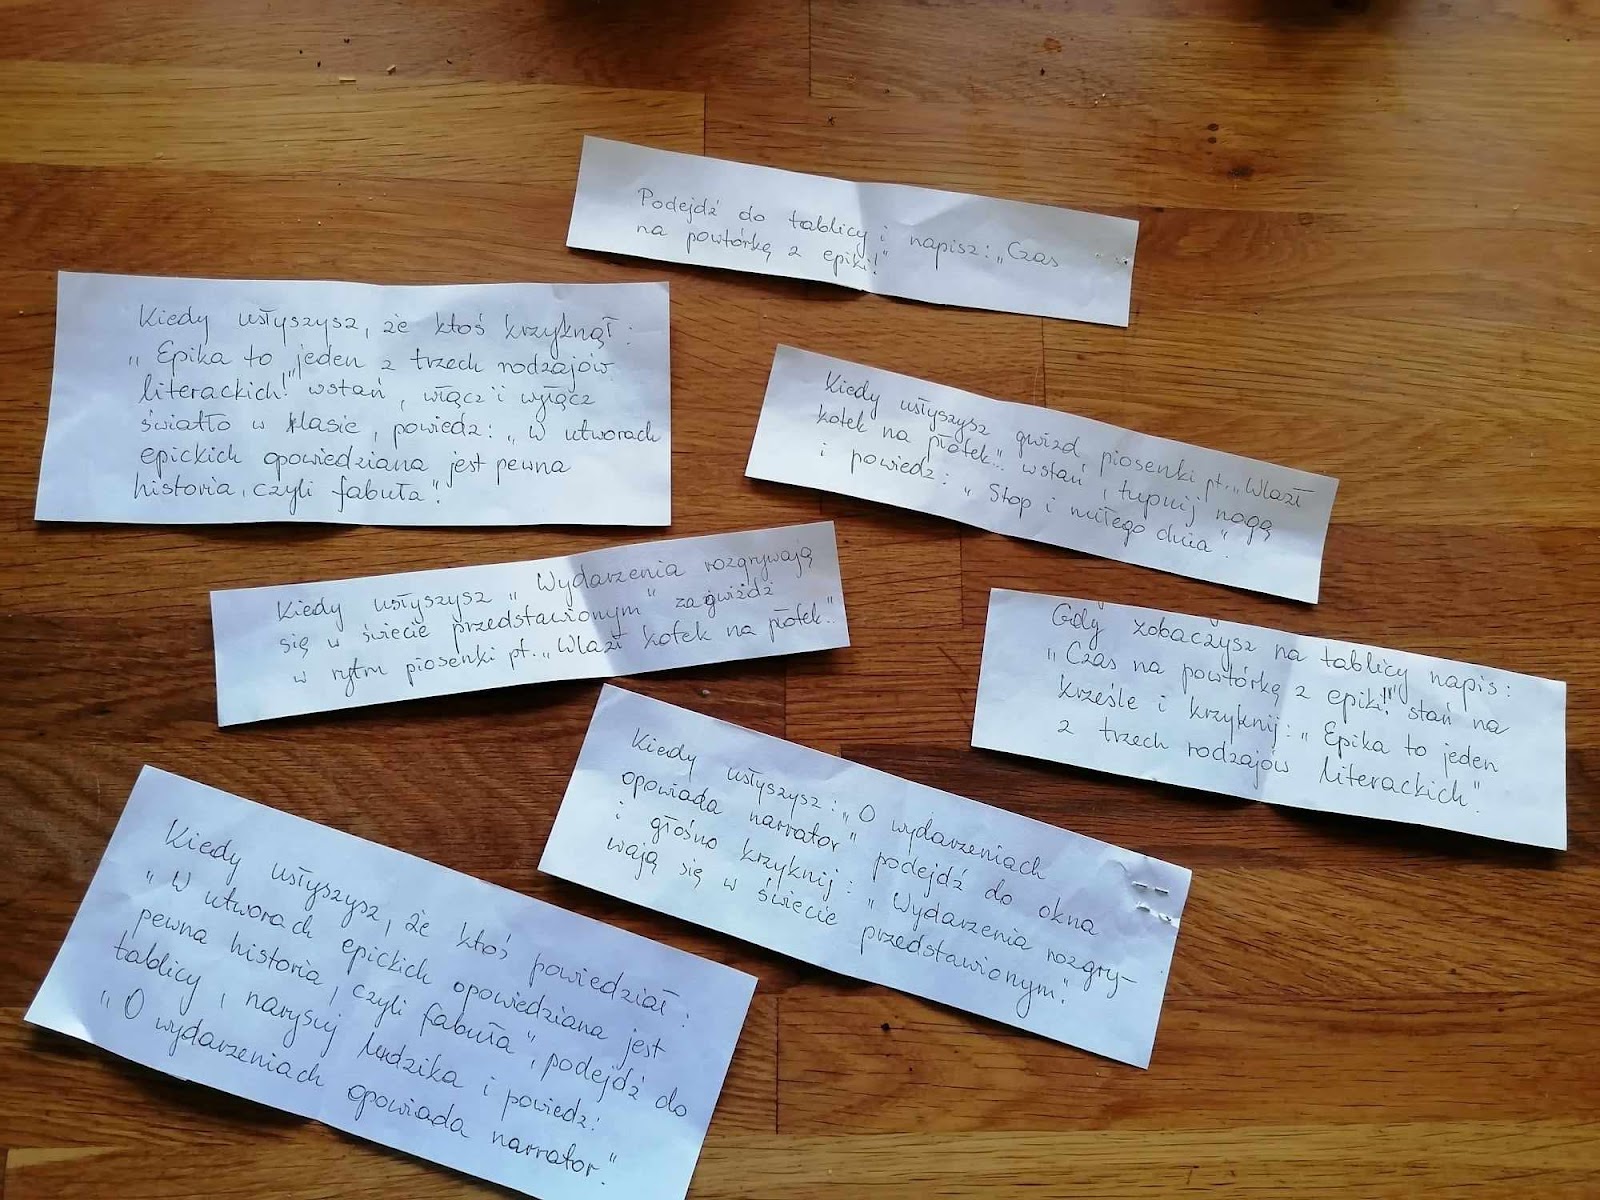 Podejdź do tablicy i napisz: „Czas
na powtórkę z epiki!"
Kiedy usłyszysz, że ktoś krzyknął:
„Epika to jeden z trzech rodzajów
literackich!" wstań, włącz i wyłącz
światło w klasie, powiedz: „W utworach
epickich opowiedziana jest pewna
historia, czyli fabuła".
Kiedy usłyszysz gwizd piosenki pt. „Wlazł
kotek na płotek..." wstań, tupnij nogą
i powiedz: „Stop i miłego dnia".
Kiedy usłyszysz „Wydarzenia rozgrywają
się w świecie przedstawionym" zagwiżdż
w rytm piosenki pt. „Wlazł kotek na płotek..."
Gdy zobaczysz na tablicy napis:
„Czas na powtórkę z epiki!" stań na
krześle i krzyknij: „Epika to jeden
z trzech rodzajów literackich".
Kiedy usłyszysz: „O wydarzeniach
opowiada narrator" podejdź do okna
i głośno krzyknij: „Wydarzenia rozgry-
wają się w świecie przedstawionym".
Kiedy usłyszysz, że ktoś powiedział:
„W utworach epickich opowiedziana jest
pewna historia, czyli fabuła", podejdź do
tablicy, narysuj ludzika i powiedz:
„O wydarzeniach opowiada narrator."